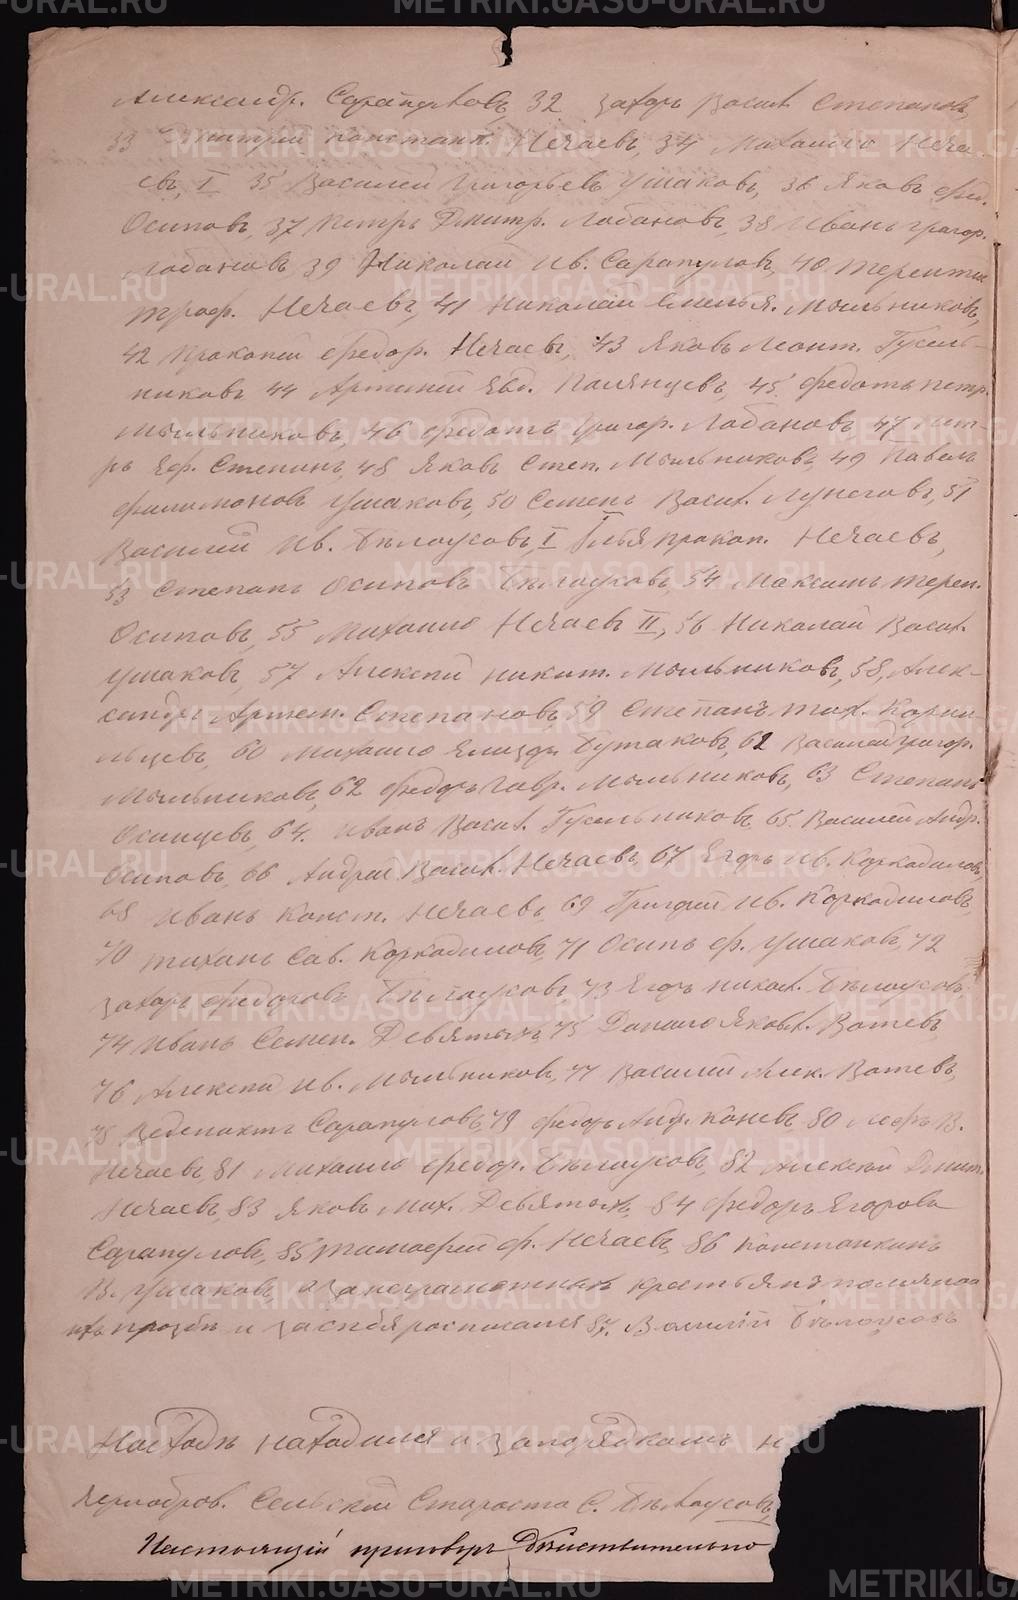 Александр. Сарапуловъ, 32 Захаръ Васил. Степановъ,
33 Дмитрий Констант. Нечаевъ, 34 Михаило Неча-
евъ, I 35 Василей Григорьевъ Ушаковъ, 36 Яковъ Фед.
Осиповъ, 37 Петръ Дмитр. Лобановъ, 38 Иванъ Григор.
Лобановъ 39 Николай Ив. Сарапуловъ, 40 Терентий
Троф. Нечаевъ, 41 Николай Емелья. Мыльниковъ,
42 Прокопей Федор. Нечаевъ, 43 Яковъ Леонт. Гусель-
никовъ 44 Артемий Евд. Полянцевъ, 45 Федотъ Петр.
Мыльниковъ, 46 Федотъ Григор. Лобановъ 47 Пет-
ръ Еф. Степинъ, 48 Яковъ Степ. Мыльниковъ, 49 Павелъ
Филимоновъ Ушаковъ, 50 Семенъ Васил. Лунеговъ, 51
Василей Ив. Бѣлоусовъ, I Илья Прокоп. Нечаевъ,
53 Степанъ Осиповъ Бѣлоусовъ, 54 Максимъ Терен.
Осиповъ, 55 Михаило Нечаевъ II, 56 Николай Васил.
Ушаковъ, 57 Алексей Никит. Мыльниковъ, 58, Алек-
сандръ Артем. Степановъ, 59 Степанъ Тих. Корни-
льцевъ, 60 Михаило Елизаръ Бутаковъ, 62 Василей Григор.
Мыльниковъ, 62 Федоръ Гавр. Мыльниковъ, 63 Степанъ
Осинцевъ, 64. Иванъ Васил. Гусельниковъ 65. Василей Андр.
Осиповъ, 66 Андрей Васил. Нечаевъ, 67 Егоръ Ив. Коркодиловъ,
68 Иванъ Конст. Нечаевъ, 69 Григорей Ив. Коркодиловъ,
70 Тиханъ Сав. Коркодиловъ, 71 Осипъ Ф. Ушаковъ, 72
Захаръ Федоровъ Бѣлоусовъ 73 Егоръ Никол. Бѣлоусовъ
74 Иванъ Семен. Девятыхъ, 75 Данило Яковл. Вотевъ,
76 Алексей Ив. Мыльниковъ, 77 Василий Алек. Вотевъ,
78 Веденихтъ Сарапуловъ, 79 Федоръ Анд. Коневъ 80 В.
Нечаевъ, 81 Михаило Федор. Бѣлоусовъ, 82 Алексей Дмит.
Нечаевъ, 83 Яковъ Мих. Девятыхъ, 84 Федоръ Егоровъ
Сарапуловъ, 85 Тимофей Ф. Нечаевъ, 86 Константинъ
В. Ушаковъ, а за неграмотныхъ крестьянъ по личной
ихъ прозбѣ и за себя росписался 87. Василий Бѣлоусовъ
На сходѣ находился и за порядкомъ н
Сельский Староста С. Бѣлоусовъ,
Настоящий приговоръ дѣйствительно
METRIKI.GASO-URAL.RU